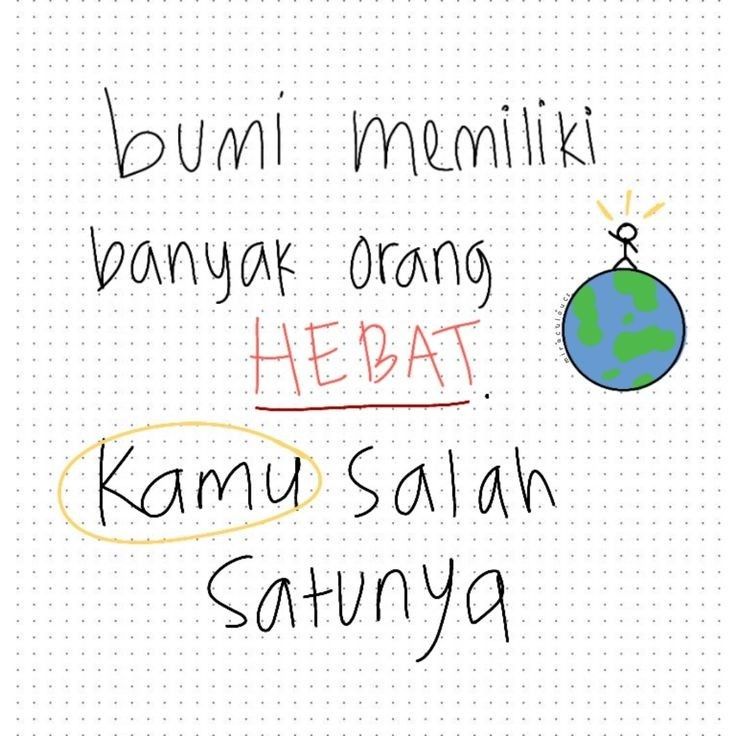 bumi memiliki
banyak orang
HEBAT.
Kamu salah
satunya
miraculoucs